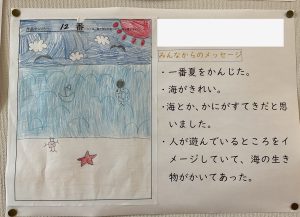 12番
みんなからのメッセージ
・一番夏をかんじた。
・海がきれい。
・海とか、かにがすてきだと思
いました。
・人が遊んでいるところをイ
メージしていて、海の生き
物がかいてあった。